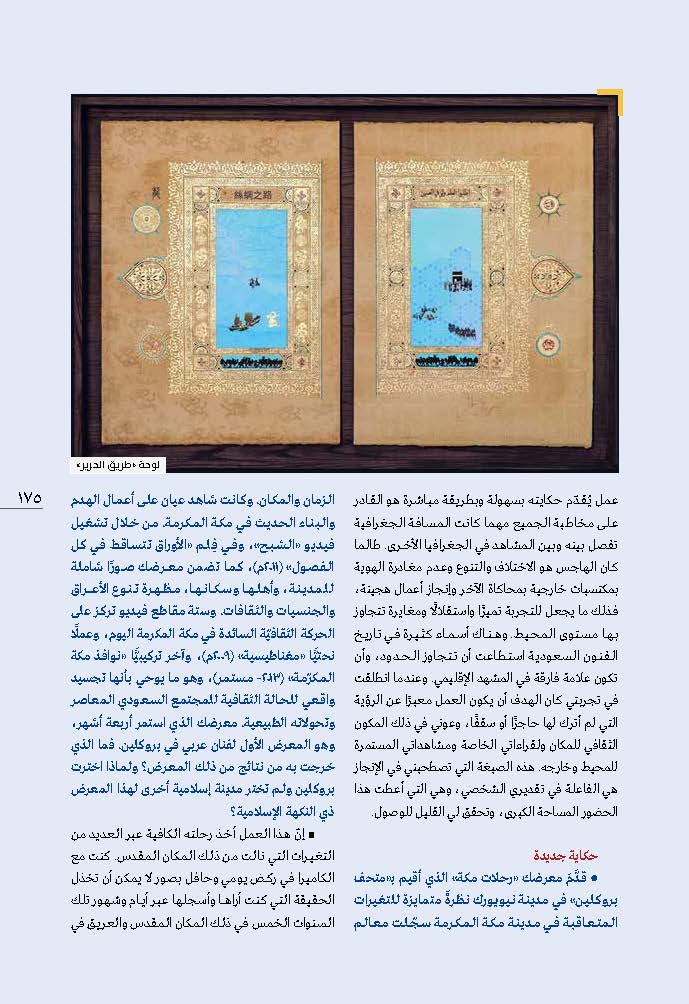 絲綢之路
لوحة «طريق الحرير»
١٧٥
عمل يُقدّم حكايته بسهولة وبطريقة مباشرة هو القادر
على مخاطبة الجميع مهما كانت المسافة الجغرافية
تفصل بينه وبين المشاهد في الجغرافيا الأخرى. طالما
كان الهاجس هو الاختلاف والتنوع وعدم مغادرة الهوية
بمكتسبات خارجية بمحاكاة الآخر وإنجاز أعمال هجينة،
فذلك ما يجعل للتجربة تميزًا واستقلالًا ومغايرة تتجاوز
بها مستوى المحيط. وهناك أسماء كثيرة في تاريخ
الفنون السعودية استطاعت أن تتجاوز الحدود، وأن
تكون علامة فارقة في المشهد الإقليمي. وعندما انطلقت
في تجربتي كان الهدف أن يكون العمل معبرًا عن الرؤية
التي لم أترك لها حاجزًا أو سقفًا، وعوني في ذلك المكون
الثقافي للمكان ولقراءاتي الخاصة ومشاهداتي المستمرة
للمحيط وخارجه. هذه الصبغة التي تصطحبني في الإنجاز
هي الفاعلة في تقديري الشخصي، وهي التي أعطت هذا
الحضور المساحة الكبرى، وتحقق لي القليل للوصول.
حكاية جديدة
● قدَّمَ معرضك «رحلات مكة» الذي أقيم بـ«متحف
بروكلين» في مدينة نيويورك نظرةً متمايزة للتغيرات
المتعاقبة في مدينة مكة المكرمة سجّلت معالم
الزمان والمكان. وكانت شاهد عيان على أعمال الهدم
والبناء الحديث في مكة المكرمة. من خلال تشغيل
فيديو «الشبح»، وفي فِلم «الأوراق تتساقط في كل
الفصول» (٢٠١١م)، كما تضمن معرضك صورًا شاملة
للمدينة، وأهلها وسكانها، مظهرة تنوع الأعراق
والجنسيات والثقافات. وستة مقاطع فيديو تركز على
الحركة الثقافيّة السائدة في مكة المكرمة اليوم، وعملًا
نحتيًّا «مغناطيسية» (٢٠٠٩م)، وآخر تركيبيًّا «نوافذ مكة
المكرّمة» (٢٠١٣- مستمر)، وهو ما يوحي بأنها تجسيد
واقعي للحالة الثقافية للمجتمع السعودي المعاصر
وتحولاته الطبيعية. معرضك الذي استمر أربعة أشهر،
وهو المعرض الأول لفنان عربي في بروكلين. فما الذي
خرجت به من نتائج من ذلك المعرض؟ ولماذا اخترت
بروكلين ولم تختر مدينة إسلامية أخرى لهذا المعرض
ذي النكهة الإسلامية؟
■ إنّ هذا العمل أخذ رحلته الكافية عبر العديد من
التغيرات التي نالت من ذلك المكان المقدس. كنت مع
الكاميرا في ركض يومي وحافل بصور لا يمكن أن تخذل
الحقيقة التي كنت أراها وأسجلها عبر أيام وشهور تلك
السنوات الخمس في ذلك المكان المقدس والعريق في